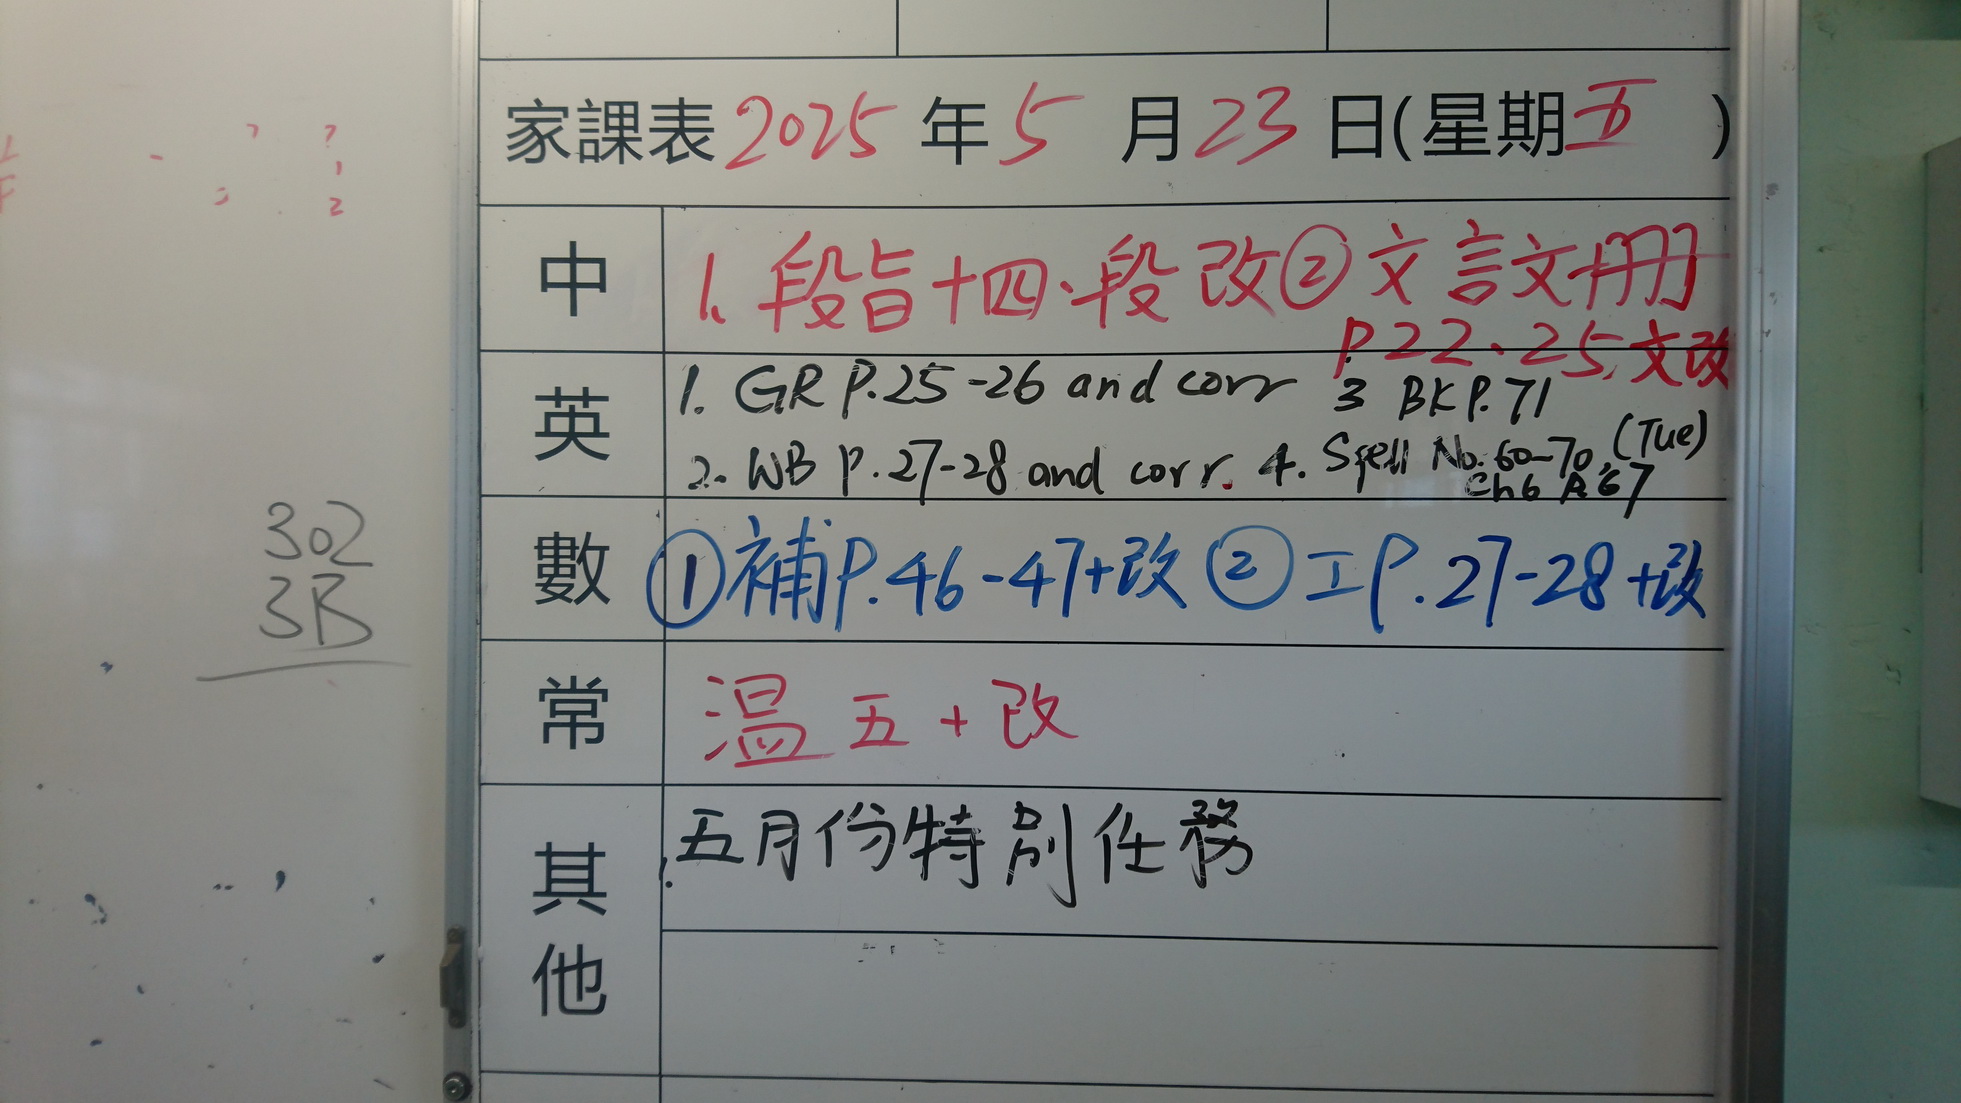 家課表 2025 年 5 月 23 日(星期五 )
中
1. 段旨十四、段改 ② 文言文冊
P.22、25,文改
英
1. GR P.25-26 and corr 3 BK P.71
2. WB P.27-28 and corr. 4. Spell No. 60-70, (Tue)
Ch6 P.67
數
① 補P.46-47+改 ② 工P.27-28+改
常
温五+改
其他
五月份特別任務
302
3B